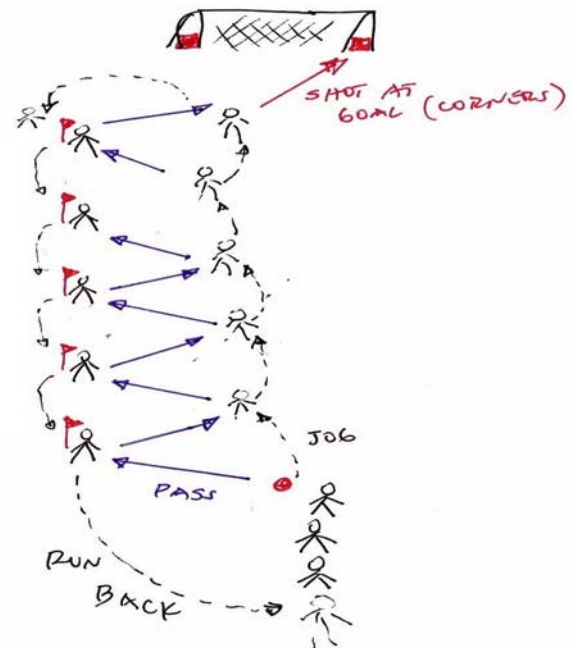 SHOT AT
GOAL (CORNERS)
JOG
PASS
RUN
BACK